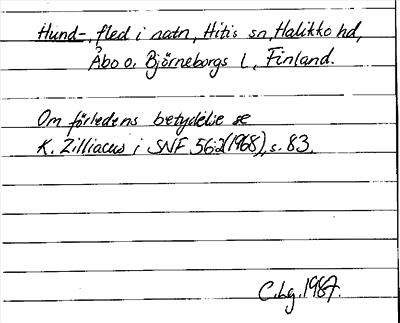 Hund-, fled i natn, Hitis sn, Halikko hd,
Åbo o. Björneborgs l, Finland.
Om förledens betydelse se
K. Zilliacus i SNF 56:2(1968), s. 83.
C.Lg. 1987.